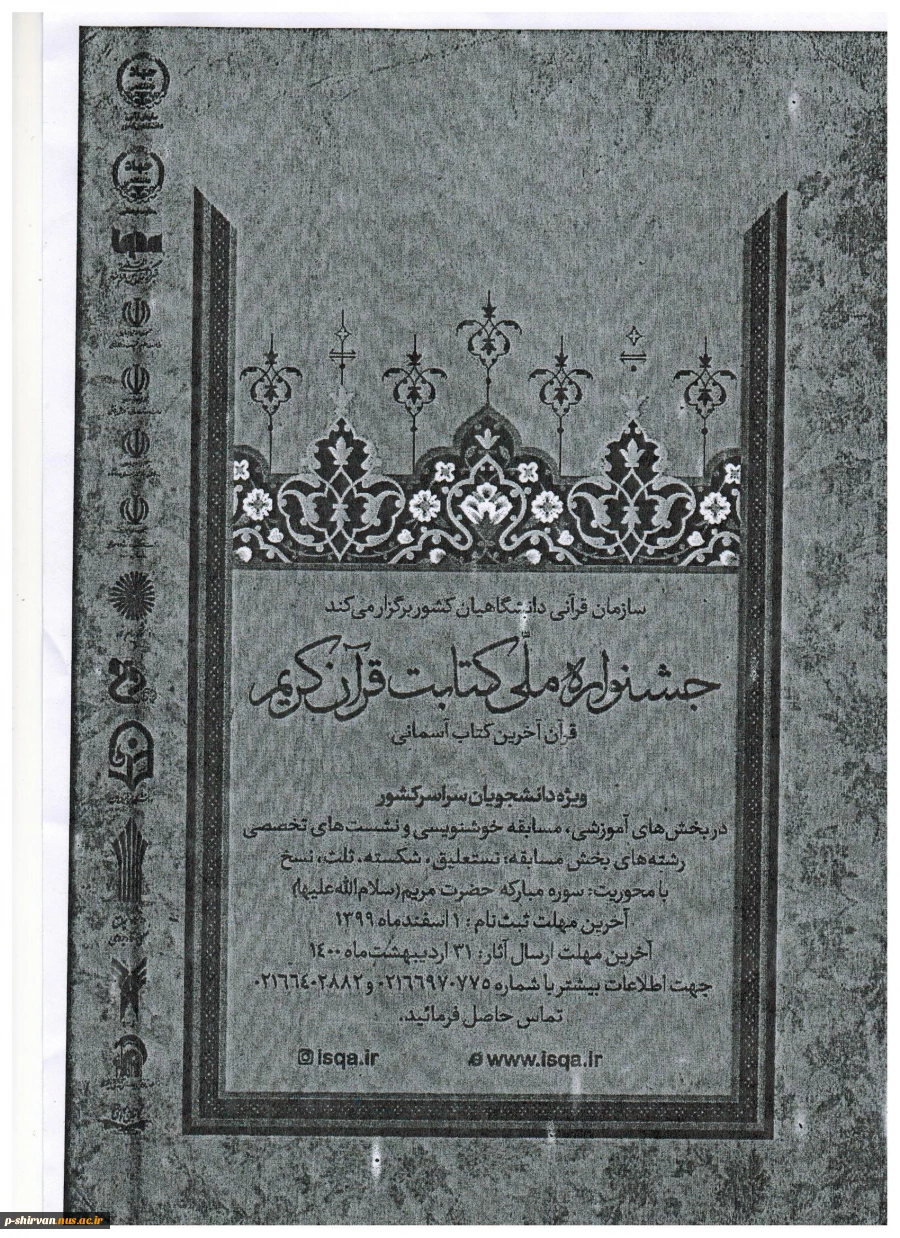 سازمان قرآنی دانشگاهیان کشور برگزار می‌کند
جشنواره ملّی کتابت قرآن کریم
قرآن آخرین کتاب آسمانی
ویژه دانشجویان سراسر کشور
در بخش‌های آموزشی، مسابقه خوشنویسی و نشست‌های تخصصی
رشته‌های بخش مسابقه: نستعلیق، شکسته، ثلث، نسخ
با محوریت: سوره مبارکه حضرت مریم (سلام‌الله‌علیها)
آخرین مهلت ثبت‌نام: ۱ اسفندماه ۱۳۹۹
آخرین مهلت ارسال آثار: ۳۱ اردیبهشت‌ماه ۱۴۰۰
جهت اطلاعات بیشتر با شماره ۰۲۱۶۶۹۷۰۷۷۵ و ۰۲۱۶۶۴۰۲۸۸۲
تماس حاصل فرمائید.
isqa.ir www.isqa.ir
p-shirvan.nus.ac.ir